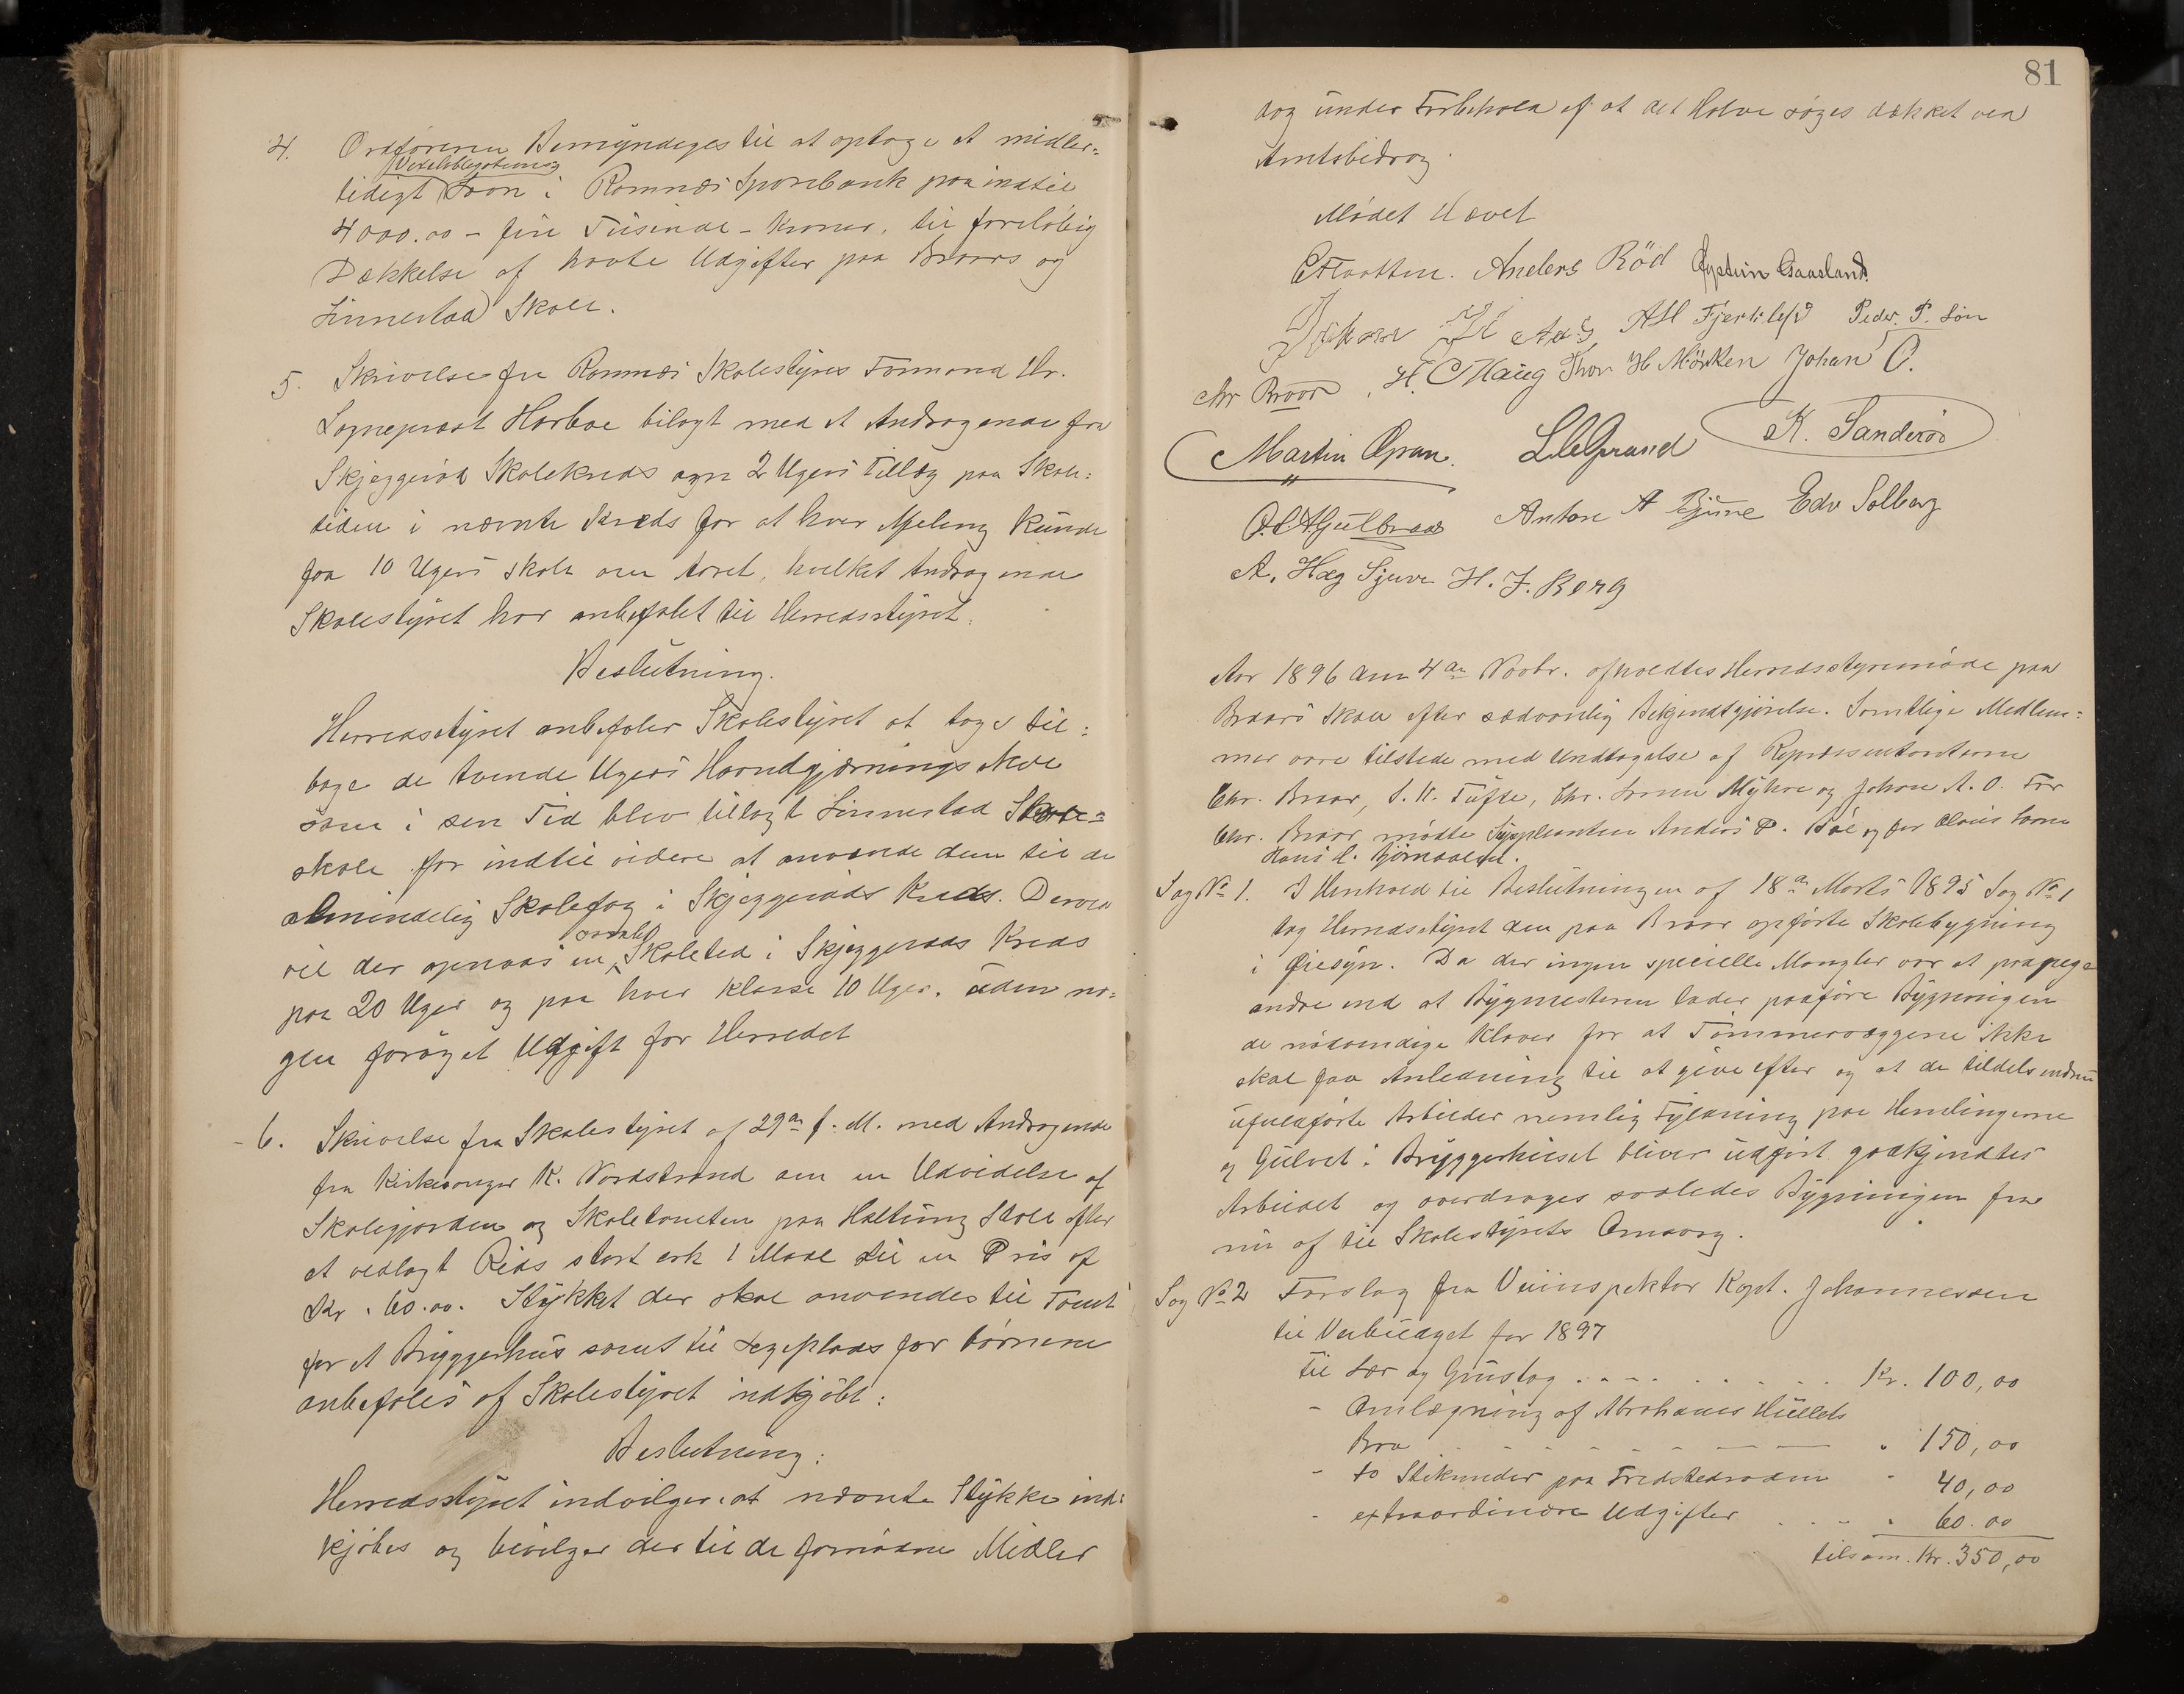 4. Ordføreren Bemyndiges til at optage et midler-
Vexelobligations
tidigt Laan i Ramnæs Sparebank paa indtil
4000.00 - fire Tusinde - Kroner, til foreløbig
Dækkelse af havte Udgifter paa Braars og
Linnestad Skole.
5. Skrivelse fra Ramnæs Skolestyres Formand Hr.
Sogneprest Harboe bilagt med et Andragende fra
Skjeggerød Skolekreds om 2 Ugers Tillæg paa Skole-
tiden i nævnte Kreds for at hver Afdeling kunde
faa 10 Ugers Skole om Aaret, hvilket Andragende
Skolestyret har anbefalet til Herredsstyret.
Beslutning.
Herredsstyret anbefaler Skolestyret at tage til-
bage de tvende Ugers Haandgjærnings
som i sin Tid blev tillagt Linnestad
skole for indtil videre at anvende dem til de
almindelig Skolefag i Skjeggerøds Kreds. Derved
samlet
vil der opnaas en Skoletid i Skjeggerøds Kreds
paa 20 Uger og paa hver Klasse 10 Uger. uden no-
gen forøget Udgift for Herredet
- 6. Skrivelse fra Skolestyret af 29de f. M. med Andragende
fra Kirkesanger K. Nordstrand om en Udvidelse af
Skolegjorden og Skoletomten paa Haltung Skole efter
et vedlagt Rids stort cirk 1 Maal til en Pris af
Kr. 60.00. Stykket der skal anvendes til Tomt
for et Bryggerhus samt til Legeplads for børnene
anbefales af Skolestyret indkjøbt:
Beslutning:
Herredsstyret indvilger i at nævnte Stykke ind-
kjøbes og bevilger der til de fornødne Midler
81
dog under Forbehold af at det Halve søges dækket ved
Amtsbidrag.
Mødet Hævet
Anders Röd Øystein Gaasland
Peder P. Lön
Chr Braar, H. C Haug Thor H Mörken Johan O.
Martin Gran. K. Sanderöd
Anton A Bjune Edv Solberg
A. Hæg Sjuve H. J. Berg
Aar 1896 den 4de Novbr. afholdtes Herredsstyremøde paa
Braars Skole efter sædvanlig Bekjendtgjørelse. Samtlige Medlem-
mer vare tilstede med Undtagelse af Repræsentanterne
Chr. Braar, S. K. Tufte, Chr. Myhre og Johan A. O. For
Chr. Braar mødte Suppleanten Anders P. og for
Hans C. Bjørndalen.
Sag No 1. I Henhold til Beslutningen af 18de Marts 1895 Sag No 1
tog Herredsstyret den paa Braar opførte Skolebygning
i Øiesyn. Da der ingen specielle Mangler var at paapege
andre end at Bygmesteren lader paaføre Bygningen
de nødvendige Klaver for at Tømmervæggene ikke
skal faa Anledning til at give efter og at de tildels endnu
ufuldførte Arbeider nemlig Fyldning paa Hemlingerne
og Gulvet i Bryggerhuset bliver udført godkjendtes
Arbeidet og overdrages saaledes Bygningen fra
nu af til Skolestyrets Omsorg.
Sag No 2 Forslag fra Veiinspektør Kapt. Johannessen
til Veibudget for 1897
til Ler og Grustag . . . . Kr. 100,00
- Omlægning af Abrahams Hullets
Bro - - - - " 150,00
- to Stikrender paa Fredstedraden - 40,00
- extraordinære Udgifter . . - " 60.00
tilsam. Kr. 350,00